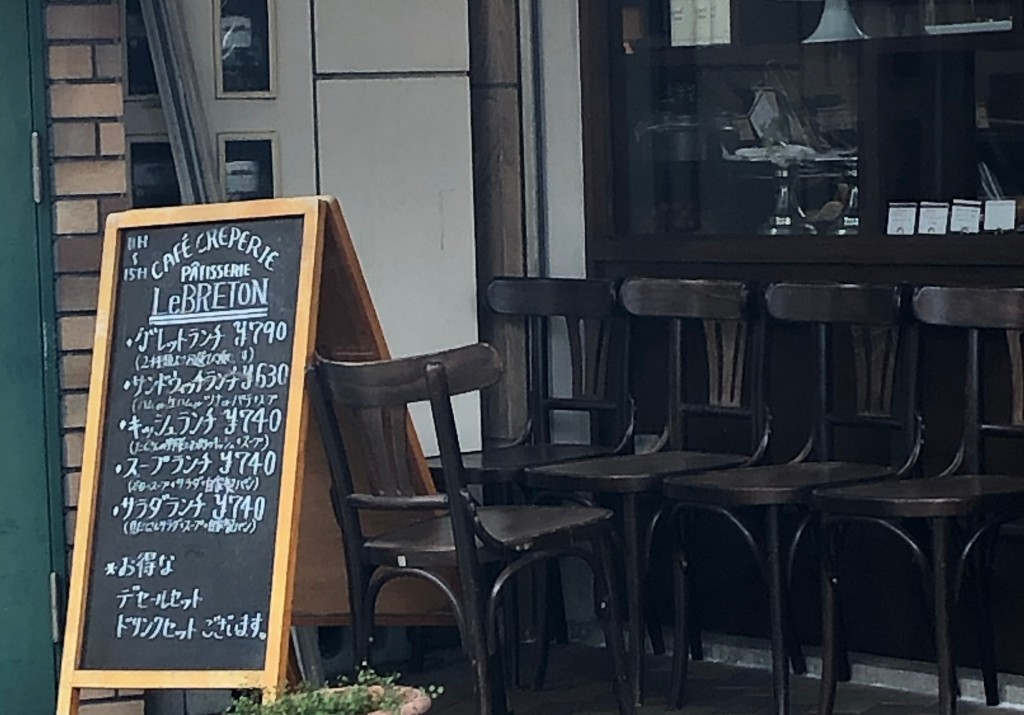 11H
S
15H
CAFÉ CRÊPERIE
PÂTISSERIE
LeBRETON
・ガレットランチ ¥790
(2種類よりお選び
・サンドウィッチランチ ¥630
・キッシュランチ ¥740
・スープランチ ¥740
・サラダランチ ¥740
*お得な
デセールセット
ドリンクセットございます。